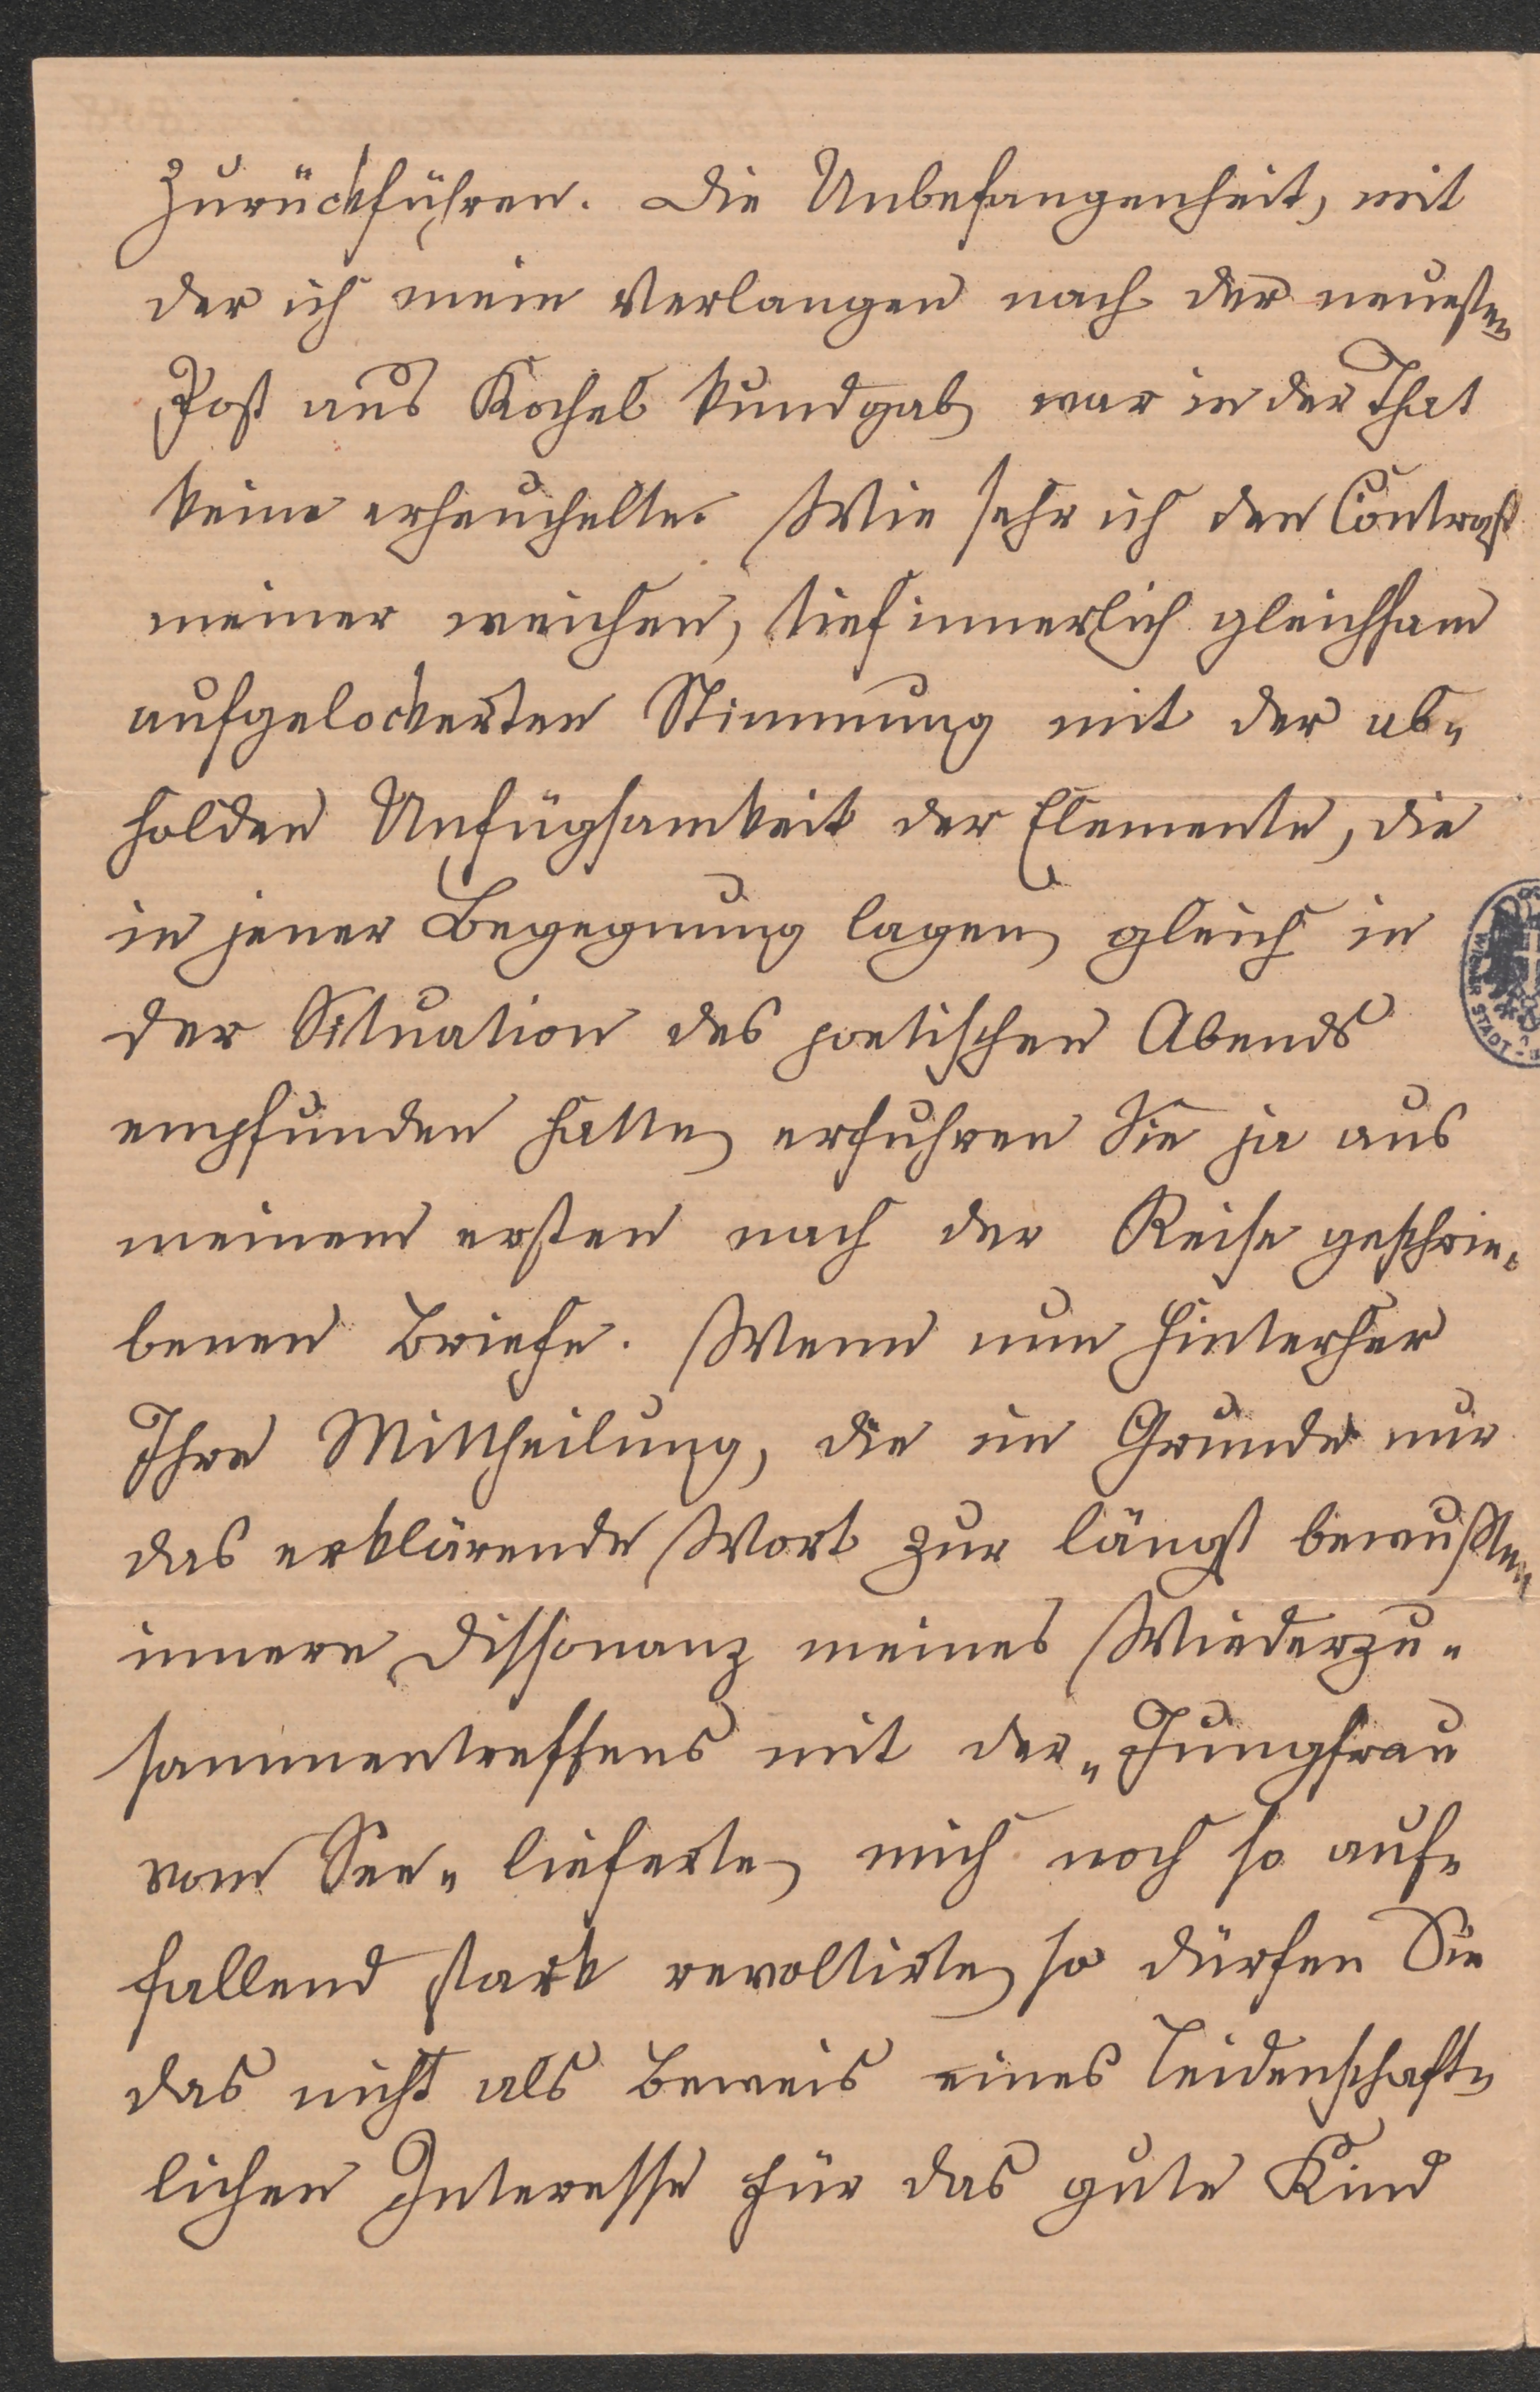 zurückführen. Die Unbefangenheit, mit
der ich mein Verlangen nach der neuesten
Post aus Kochel kundgab, war in der That
keine erheuchelte. Wie sehr ich den Contrast
meiner weichen, tief innerlich gleichsam
aufgelockerten Stimmung mit der ab„
holden Unfügsamkeit der Elemente, die
in jener Begegnung lagen, gleich in
der Situation des poetischen Abends
empfunden hatte, erfuhren Sie ja aus
meinem ersten nach der Reise geschrie„
benen Briefe. Wenn nun hinterher
Ihre Mittheilung, die im Grunde nur
das erklärende Wort zur längst bewußten
innere Dissonanz meines Wiederzu„
sammentreffens mit der „Jungfrau
vom See„ lieferte, mich noch so auf„
fallend stark revoltirte, so dürfen Sie
das nicht als Beweis eines leidenschaft„
lichen Interesse für das gute Kind
WIENER STADT-